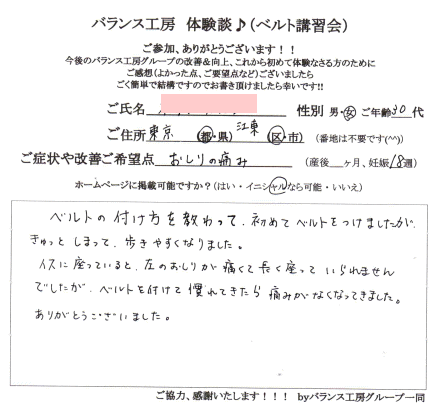 バランス工房 体験談♪(ベルト講習会)
ご参加、ありがとうございます！！
今後のバランス工房グループの改善＆向上、これから初めて体験なさる方のために
ご感想(よかった点、ご要望点など)ございましたら
ごく簡単で結構ですのでお書き頂けましたら幸いです!!
ご氏名 性別 男・女 ご年齢30代
ご住所 東京 (都・県) 江東 (区・市) (番地は不要です(^^))
ご症状や改善ご希望点 おしりの痛み (産後 ヶ月、妊娠18週)
ホームページに掲載可能ですか？(はい・イニシャルなら可能・いいえ)
ベルトの付け方を教わって、初めてベルトをつけましたが、
きゅっと しまって、歩きやすくなりました。
イスに座っていると、左のおしりが痛くて長く座って いられません
でしたが、ベルトを付けて慣れてきたら 痛みがなくなってきました。
ありがとうございました。
ご協力、感謝いたします！！！ byバランス工房グループ一同